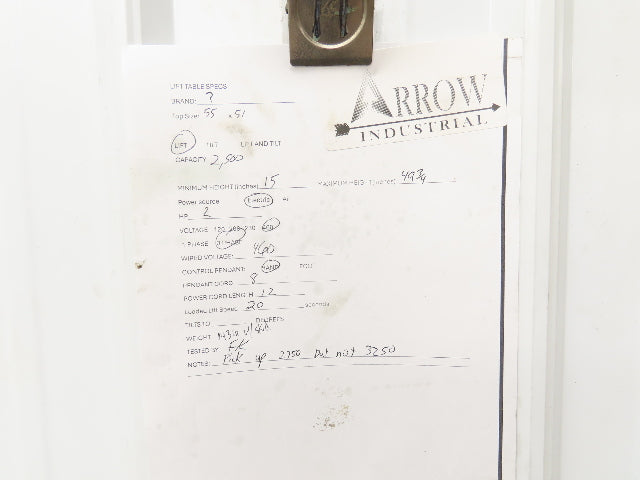 ARROW
INDUSTRIAL
LIFT TABLE SPECS
BRAND: ?
Top Size: 55 x 51
LIFT TILT LIFT AND TILT
CAPACITY 2,500
MINIMUM HEIGHT (inches) 15 MAXIMUM HEIGHT (inches) 49 3/4
Power source Electric
HP 2
VOLTAGE 120 208-230 460
1 PHASE
WIRED VOLTAGE: 460
CONTROL PENDANT: HAND FOOT
PENDANT CORD 8
POWER CORD LENGTH 12
Loaded Lift Speed 20 seconds
TILTS TO DEGREES
WEIGHT
TESTED BY FK
NOTES: Pick up 2750 but not 3250